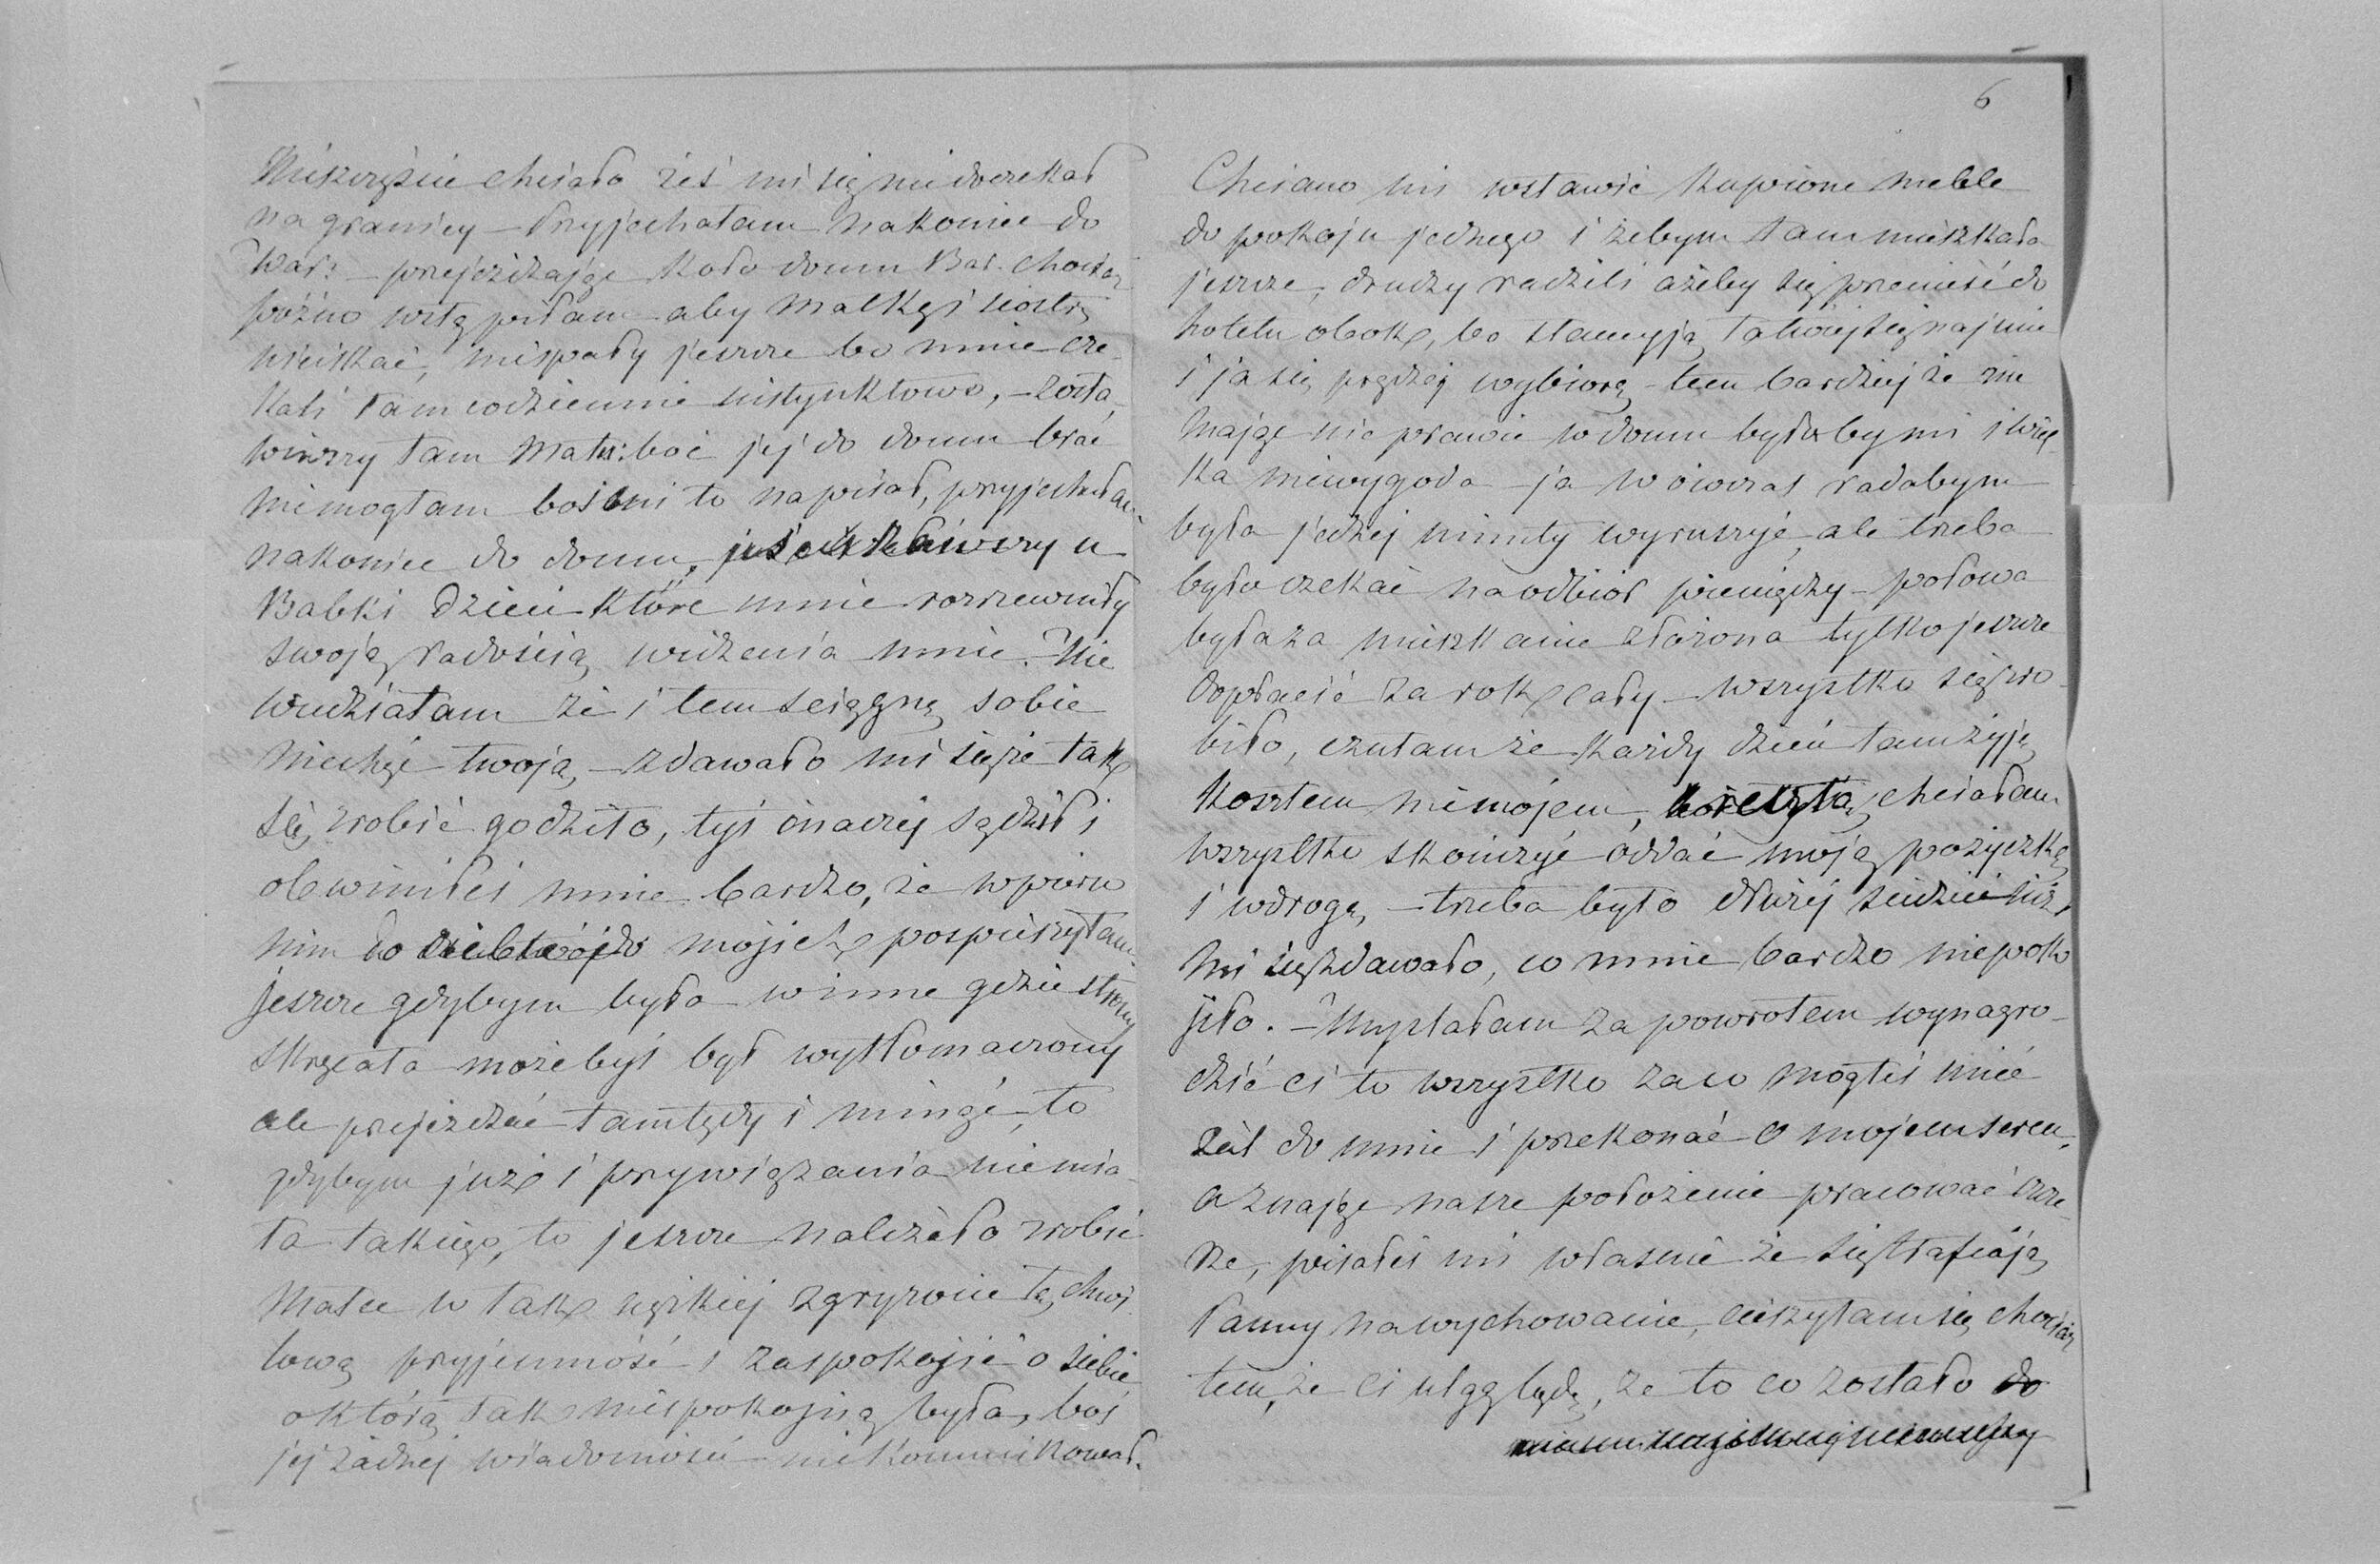 Nieszczęście chciało żeś mi się niedoczekał
na granicy – Przyjechałam nakoniec do
War: – przejeżdżając koło domu Bar. chociaż
późno wstąpiłam aby Matkę i siostrę
uściskać, niespały jeszcze bo mnie cze-
kali tam codziennie instynktowo, – Zosta-
wiwszy tam Mat: boć jej do domu brać
niemogłam boś mi to napisał, przyjechałam
nakoniec do domu, uściskawszy u
Babki dzieci które mnie rozrzewniły
swoją radością widzenia mnie. Nie
wiedziałam że i tem ściągnę sobie
niechęć twoją, – zdawało mi się że tak
się zrobić godziło, tyś inaczej sądził i
obwiniłeś mnie bardzo, że wpierw
nim do mojich pospieszyłam
jeszcze gdybym była w inne gdzie strony
skręcała możebyś był wytłomaczony
ale przejeżdżać tamtędy i minąć, to
gdybym już i przywiązania niemia-
ła takiego, to jeszcze należało zrobić
Matce w tak ciężkiej zgryzocie tę chwi-
lową przyjemność i zaspokojić o siebie
o którą tak niespokojną była, boś
jej żadnej wiadomości niekomunikował.
6
Chciano mi wstawić kupione meble
do pokoju jednego i żebym tam mieszkała
jeszcze, drudzy radzili ażeby się przenieść do
hotelu obok, bo stancyją łatwiej się najmie
i ja się prędzej wybiorę – tem bardziej że nie
mając nic prawie w domu byłaby mi i wiel-
ka niewygoda – ja wówczas radabym
była jednej minuty wyruszyć, ale trzeba
było czekać na odbiór pieniędzy – połowa
była za mieszkanie złożona tylko jeszcze
dopłacić za rok cały – wszystko się zro-
biło, czułam że każdy dzień tam żyję
kosztem niemojem, chciałam
wszystko skończyć oddać moją pożyczkę
i w drogę, – trzeba było dłużej siedzieć niż
mi się zdawało, co mnie bardzo niepoko
jiło. – Myślałam za powrotem wynagro-
dzić ci to wszystko zaco mogłeś mieć
żal do mnie i przekonać o mojem sercu,
a znając nasze położenie pracować szcze-
rze, pisałeś mi własnie że się trafiają
Panny na wychowanie, cieszyłam się chociaż
tem, że ci ulgą będę, że to co zostało do